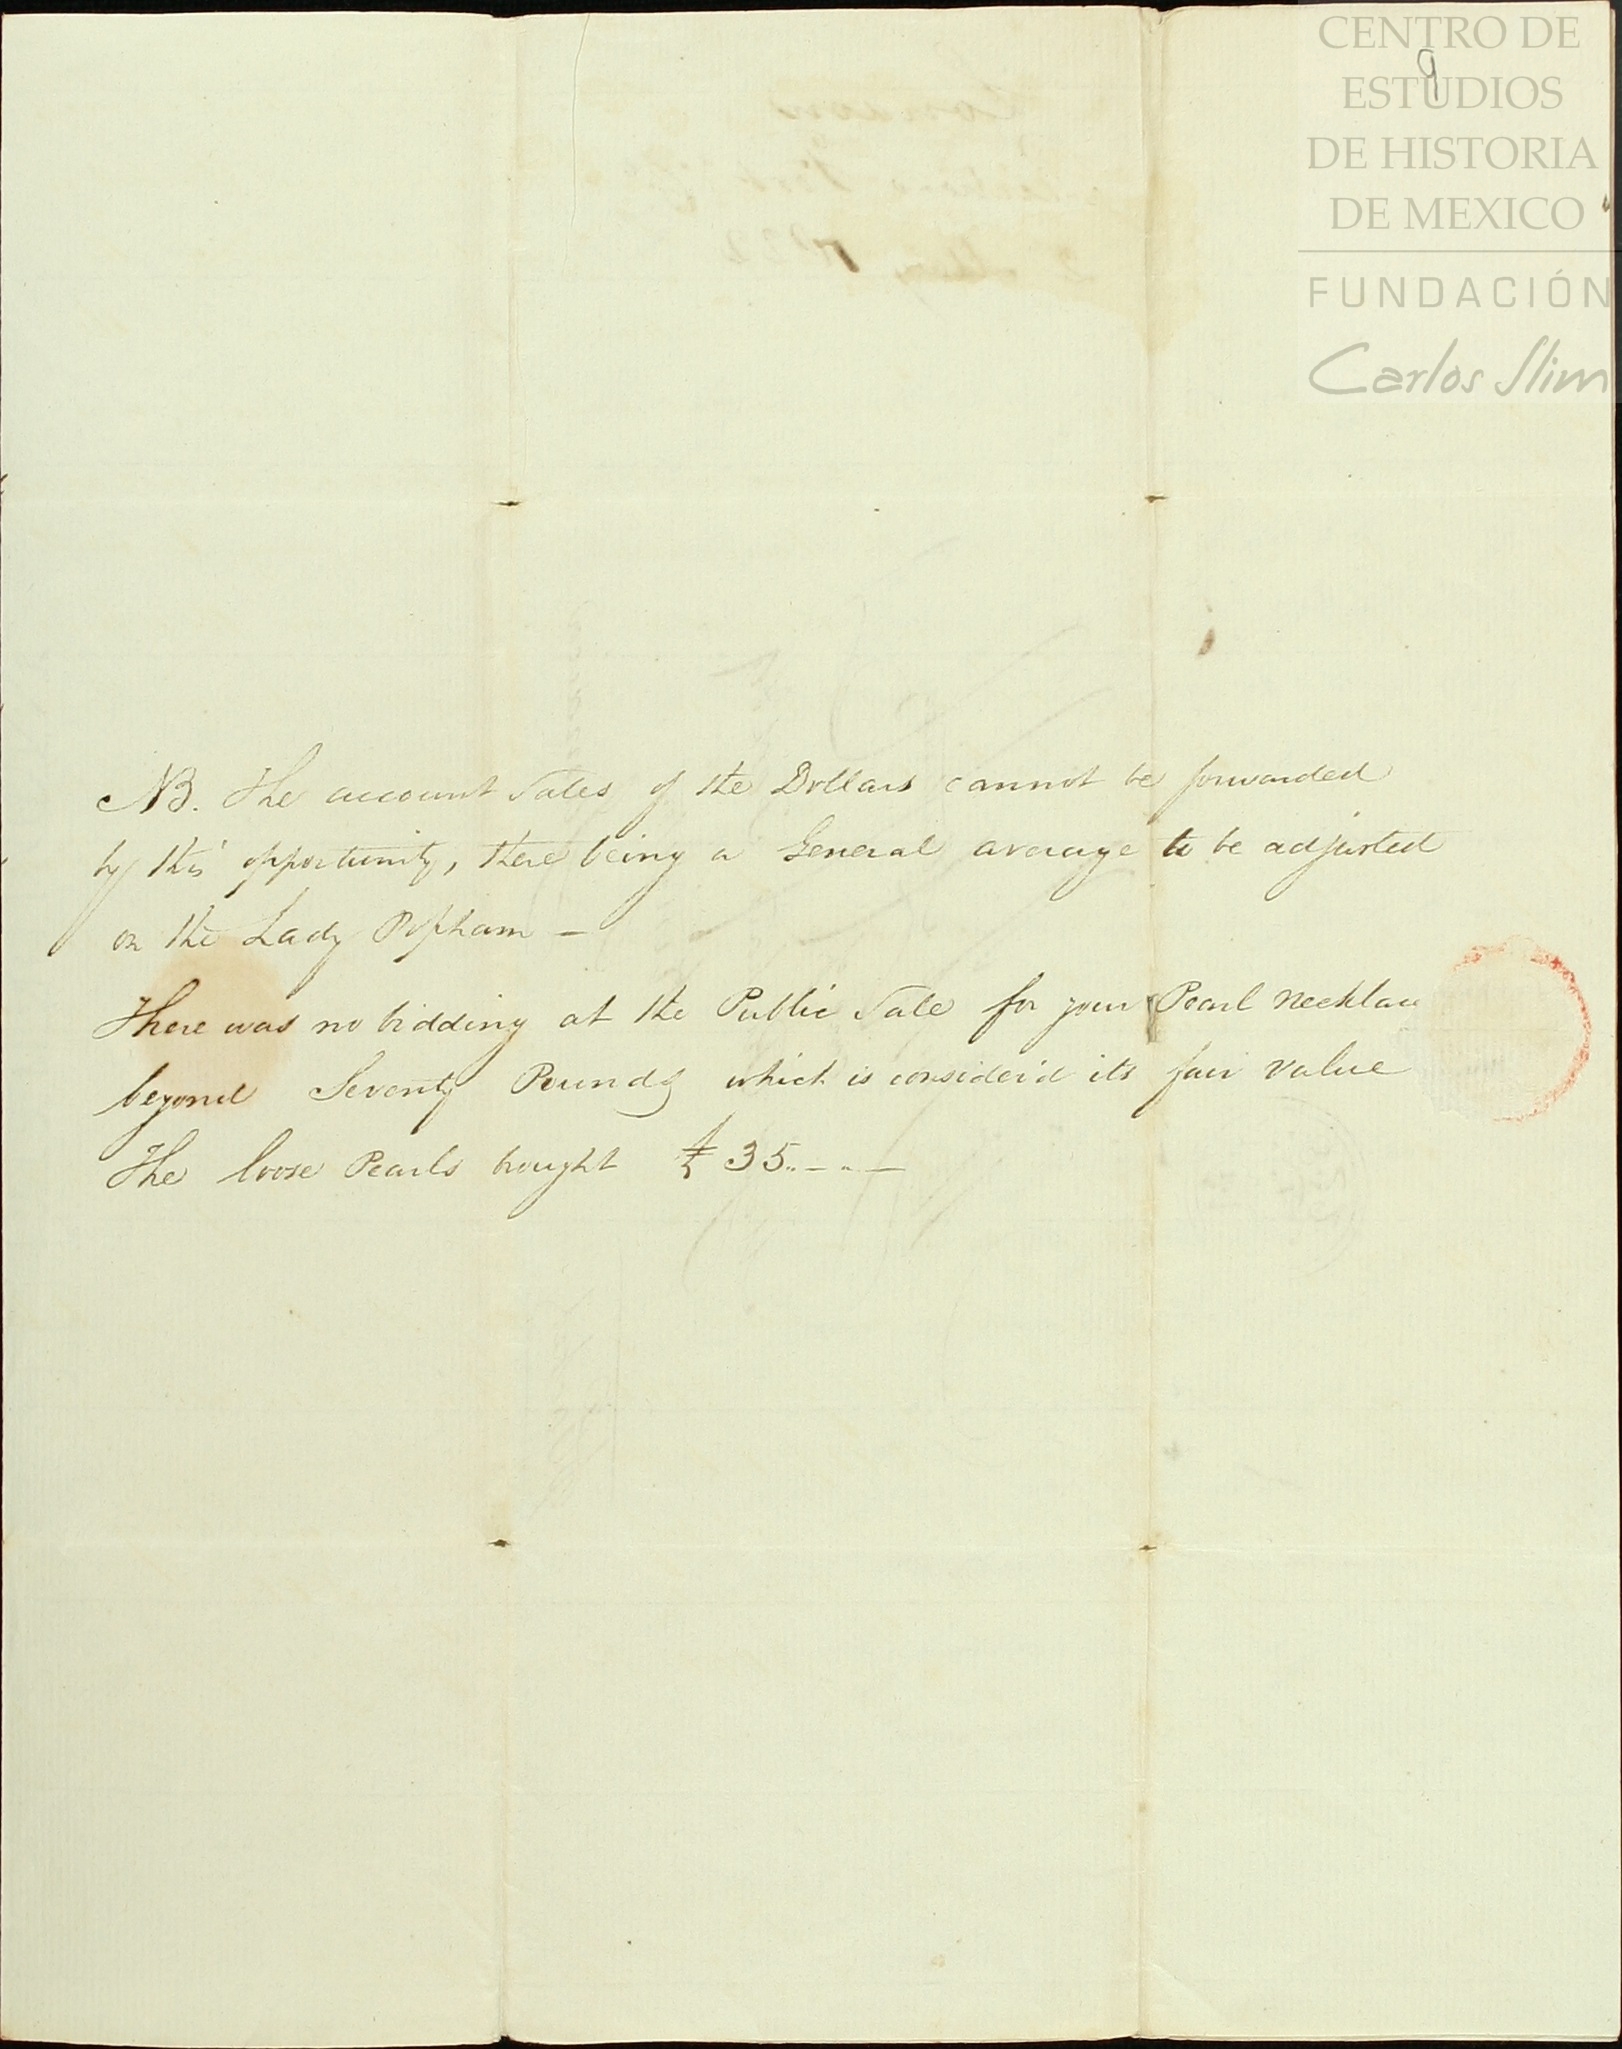 CENTRO DE
ESTUDIOS
DE HISTORIA
DE MEXICO
FUNDACIÓN
Carlos Slim
9
NB. The account Sales of the Dollars cannot be forwarded
by this opportunity, there being a General average to be adjusted
on the Lady Popham —
There was no bidding at the Public Sale for your Pearl Necklace
beyond Seventy Pounds which is consider'd its fair value
The loose Pearls bought £ 35..–..–